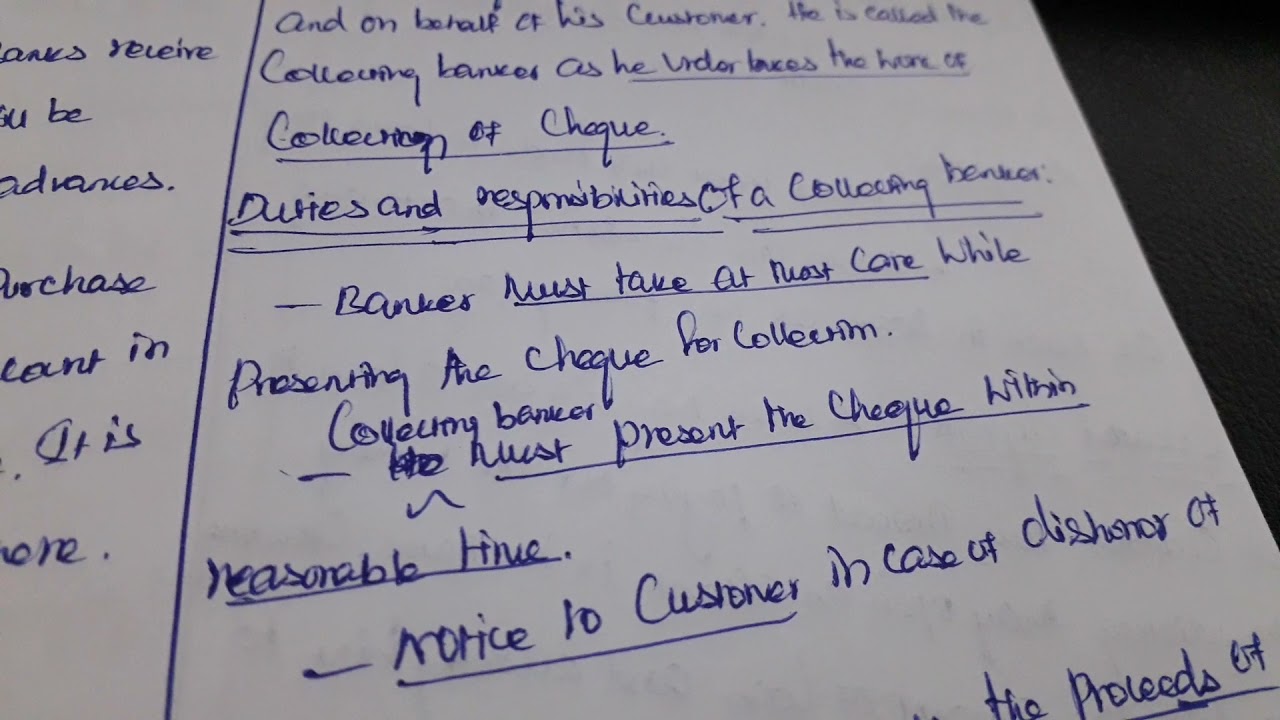 anks receive
ou be
advances.
Purchase
cant in
. It is
ore.
and on behalf of his Customer. He is called the
Collecting banker as he undertakes the work of
Collection of Cheque.
Duties and responsibilities of a Collecting banker:
— Banker must take at most care while
Presenting the Cheque for Collection.
Collecting banker
— must present the Cheque within
reasonable time.
— Notice to Customer in case of dishonor of
the proceeds of